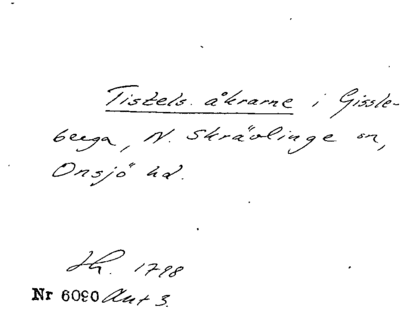 Tistels åkrarne i Gissle-
berga, N. Skrävlinge sn,
Onsjö hd.
Jh. 1798
Nr 6090 Akt 3.